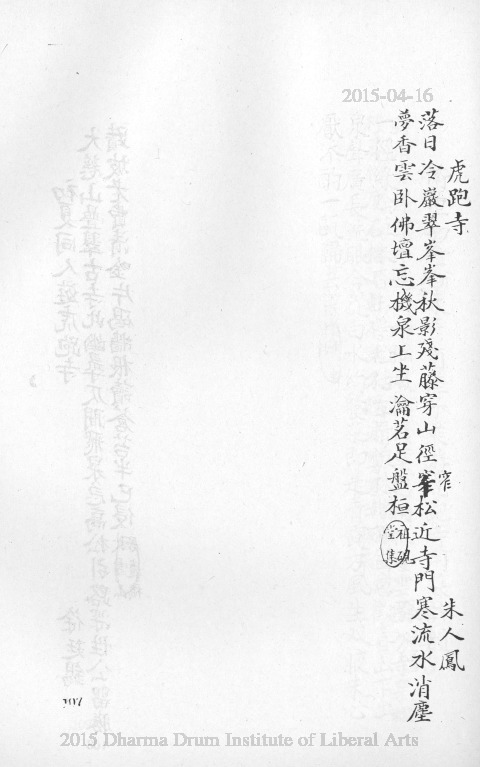 2015-04-16
虎跑寺
朱人鳳
落日冷巖翠峯峯秋影殘藤穿山徑窄松近寺門寒流水消塵
夢香雲卧佛壇忘機泉上坐瀹茗足盤桓
祖硯堂集
207
2015 Dharma Drum Institute of Liberal Arts